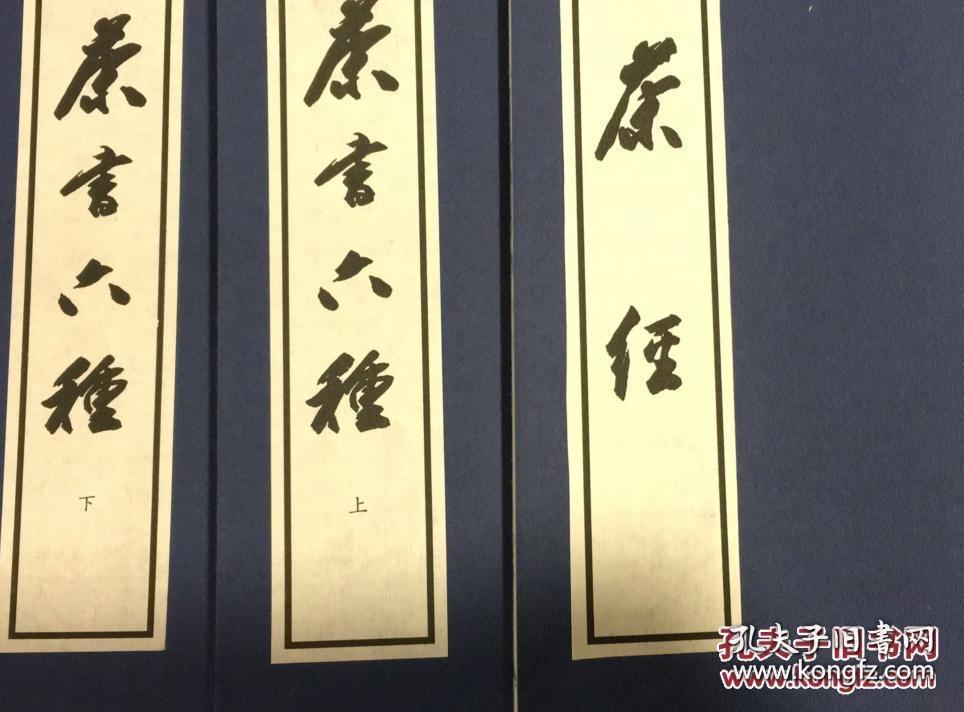 茶经
茶書六種
上
茶書六種
下
孔夫子旧書网
www.kongfz.com